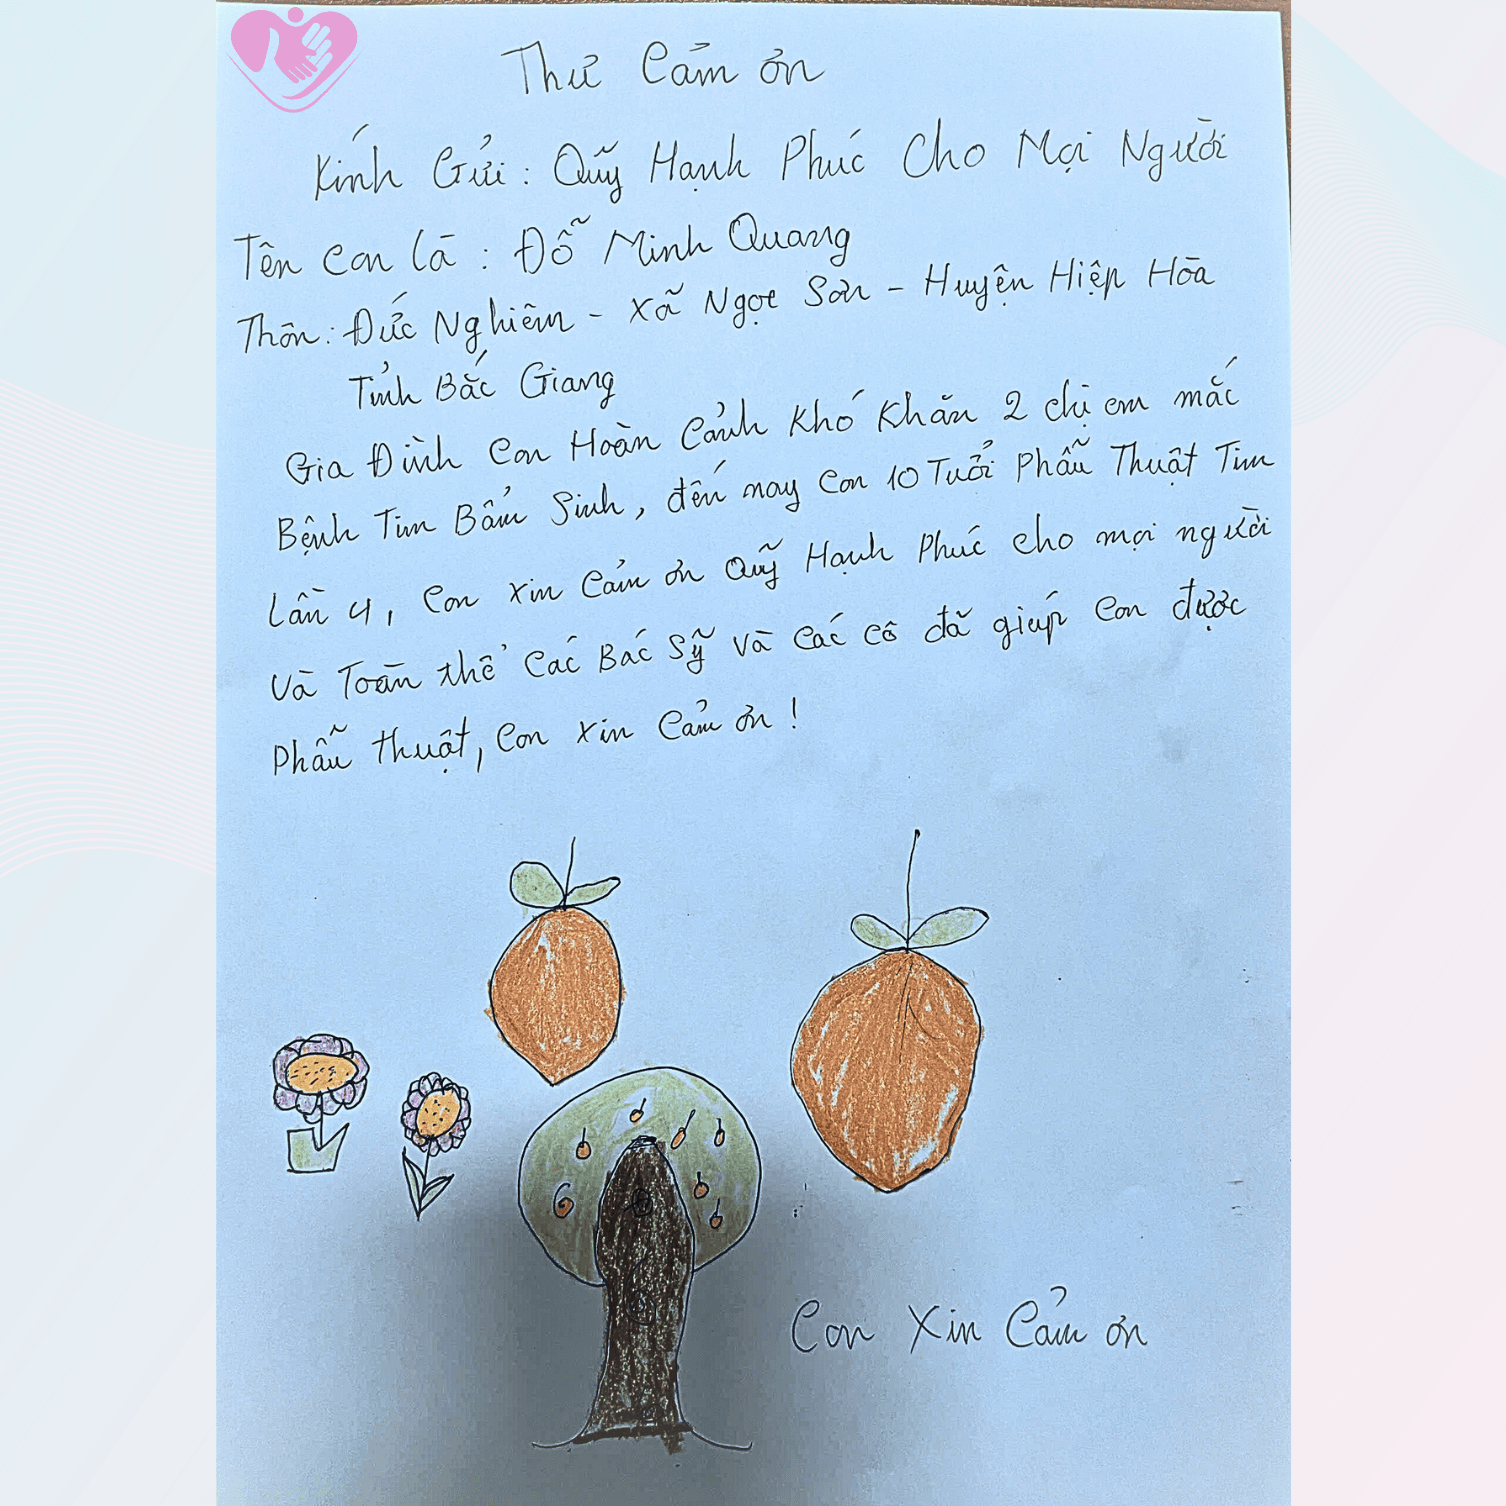 Thư Cảm ơn
Kính Gửi: Quỹ Hạnh Phúc Cho Mọi Người
Tên Con là: Đỗ Minh Quang
Thôn: Đức Nghiêm - Xã Ngọc Sơn - Huyện Hiệp Hòa
Tỉnh Bắc Giang
Gia Đình Con Hoàn Cảnh Khó Khăn 2 chị em mắc
Bệnh Tim Bẩm Sinh, đến nay Con 10 Tuổi Phẫu Thuật Tim
Lần 4, Con xin Cảm ơn Quỹ Hạnh Phúc cho mọi người
Và Toàn thể Các Bác Sỹ Và Các Cô đã giúp Con được
Phẫu thuật, Con Xin Cảm ơn!
Con Xin Cảm ơn